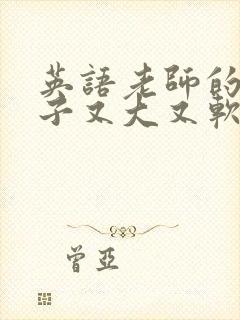 英語老師的
子又大又軟
曾亞